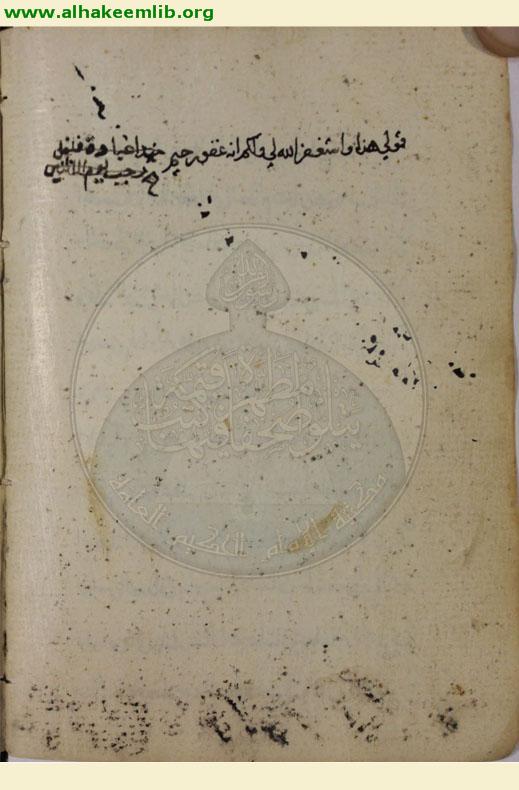 www.alhakeemlib.org
قولي هذا واستغفر الله لي ولكم انه غفور رحيم
رجب يوم الاثنين
رسول من الله
يتلو صحفا مطهرة فيها كتب قيمة
مكتبة الإمام الحكيم العامة